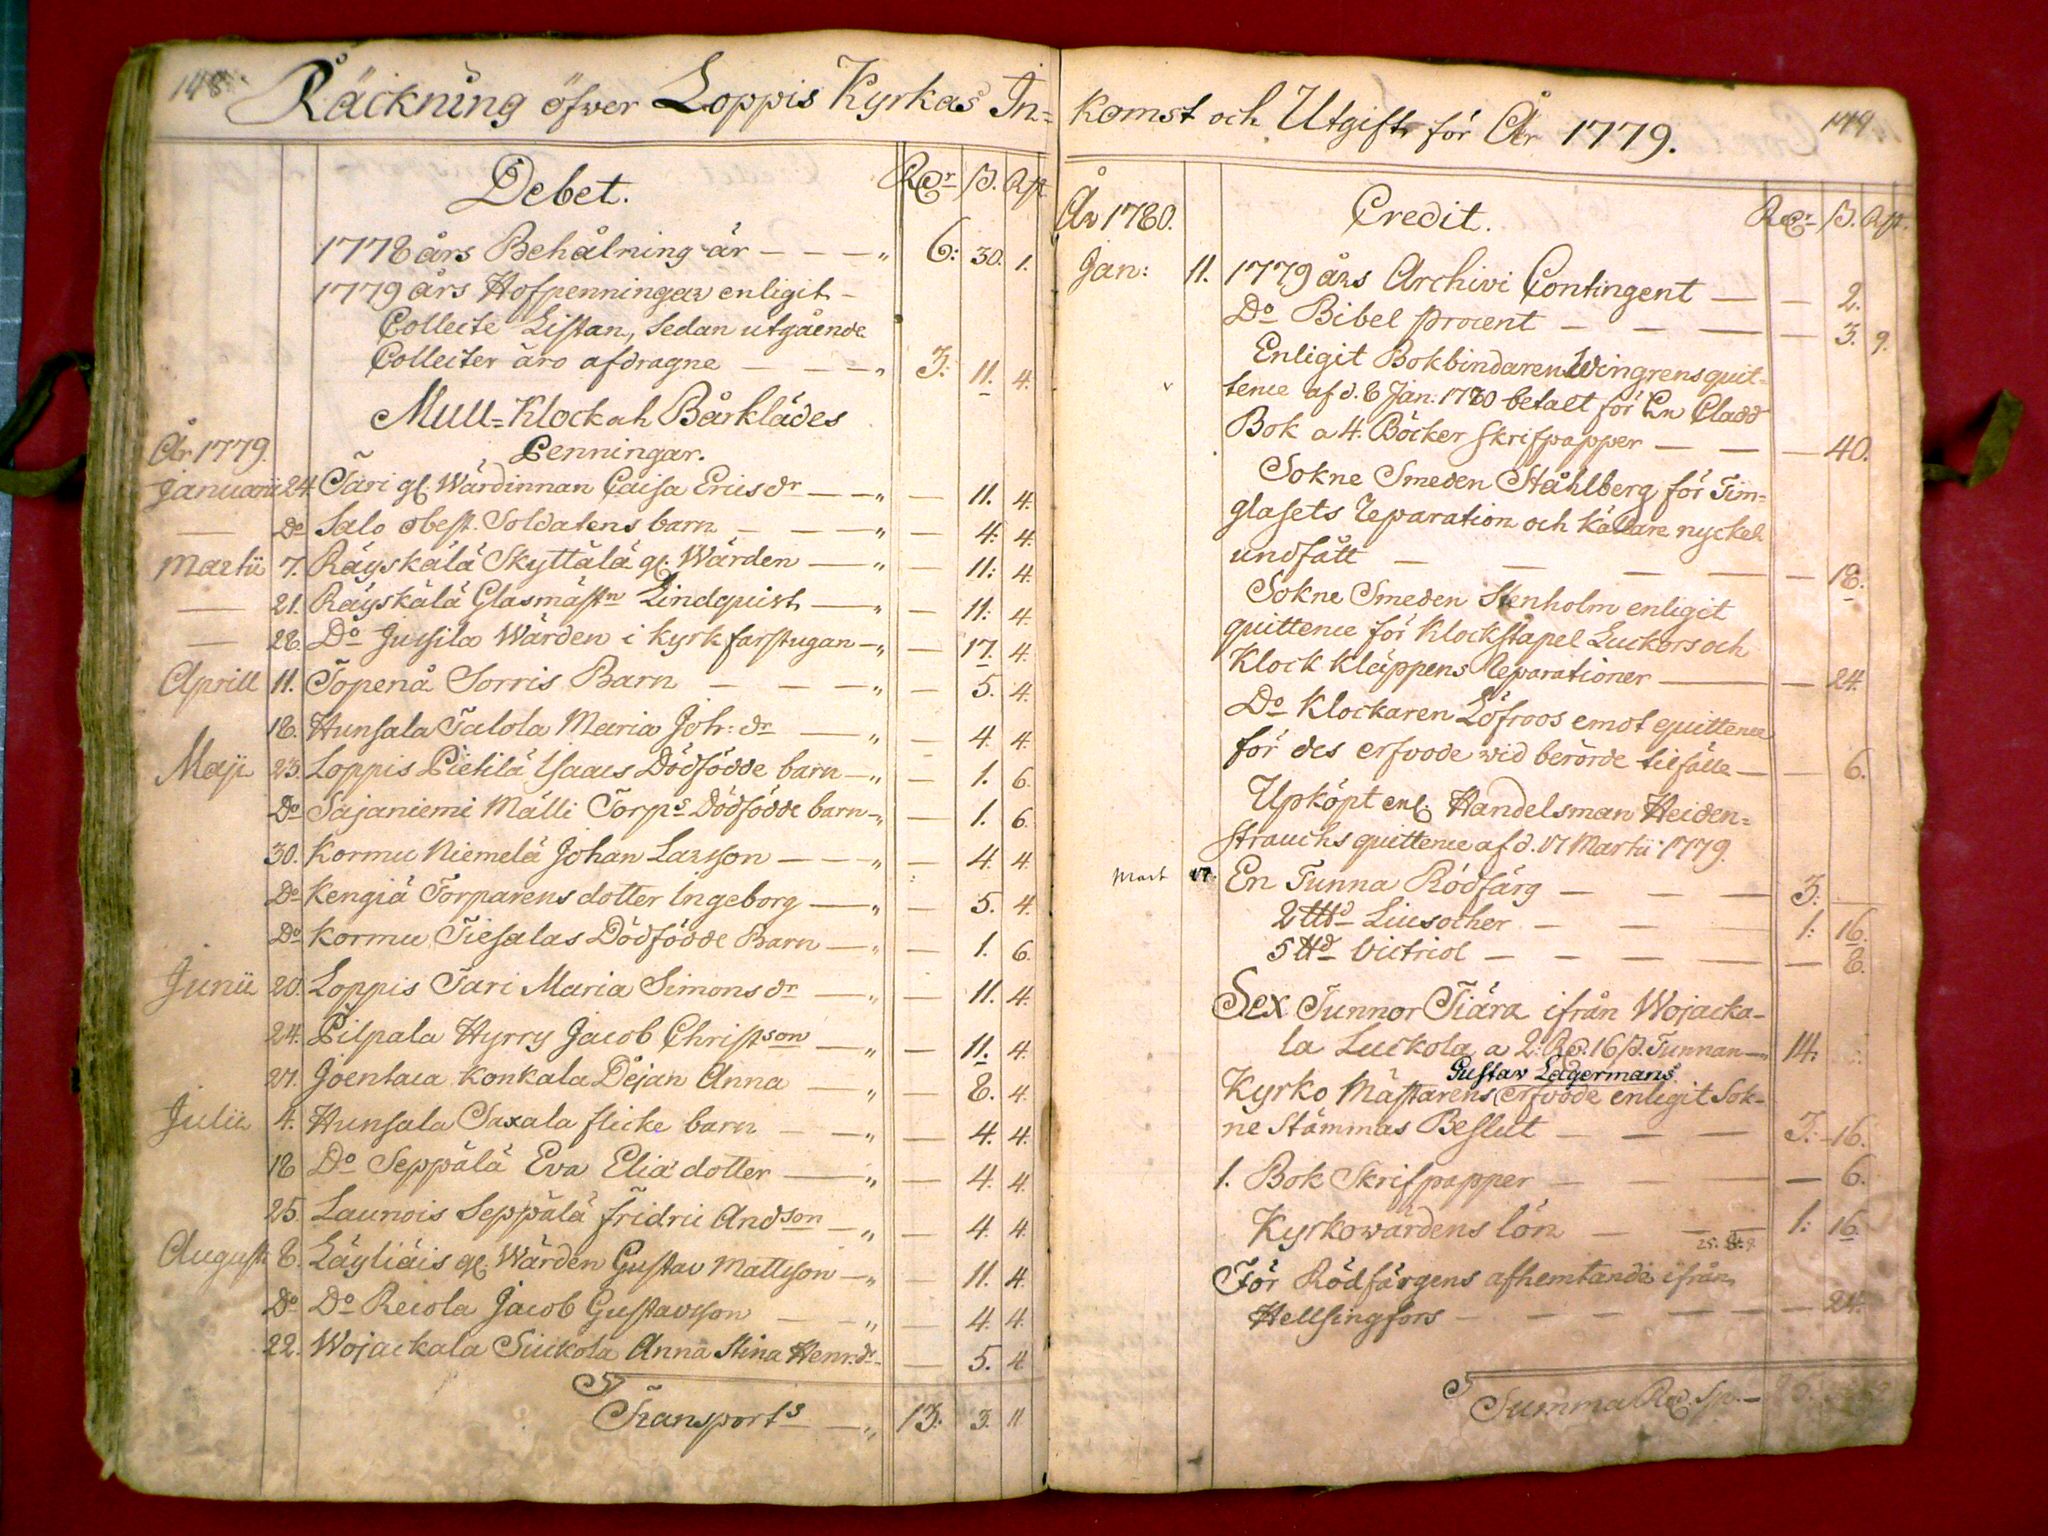 148.
Räckning öfwer Loppis Kyrkas In=
Debet.
RDr ß. Rst
1778 års Behålning är — — — „ 6: 30. 1.
1779 års Hofpenningar enligit —
Collecte Listan, sedan utgående
Collecter äro afdragne — — — „ 3: 11. 4.
Mull= Klock och Bårklädes
År 1779. Penningar.
Januarii 24 Tari gl. Wärdinnan Caisa Ericsdr — — „ — 11. 4.
— Do Salo obest. Soldatens barn — — „ — 4. 4.
Martii 7. Räyskälä Skyttälä gl. Wärden — „ — 11: 4.
— 21. Räyskälä Glasmästrn Lindquist — „ — 11: 4.
— 28. Do Jussila Wärden i kyrkfarstugan — „ — 17. 4.
Aprill 11. Topenå Sorris Barn — — — „ — 5. 4.
18. Hunsala Talola Maria Joh: dr — „ — 4. 4.
Maji 23. Loppis Pietilä Ysaacs Dödfödde barn — „ — 1. 6.
Do Sajaniemi Mälli Torps Dödfödde barn — „ — 1. 6.
30. Kormu Niemelä Johan Larsson — — — „ — 4. 4.
Do Kengiä Torparens dotter Ingeborg — „ — 5. 4.
Do Kormu Tiesalas Dödfödde Barn — „ — 1. 6.
Junii 20. Loppis Tari Maria Simons dr — „ — 11. 4.
24. Pilpala Hyrry Jacob Christson — „ — 11. 4.
27. Joentaca Konkala Dejan Anna — „ — 8. 4.
Julii 4. Hunsala Saxala flicke barn — — „ — 4. 4.
18 Do Seppälä Eva Elia dotter — „ — 4. 4.
25. Launois Seppälä Fridric Andson — „ — 4. 4.
August. 8. Läyliäis gl. Wärden Gustav Mattsson — „ — 11. 4.
Do Do Reiola Jacob Gustavsson — — „ — 4. 4.
22. Wojackala Siukola Anna Stina Henr.dr — — 5. 4.
Transports — „ 13. 3. 11
149
komst och Utgift för År 1779.
År 1780.
Credit.
RDr ß. Rst.
Jan: 11. 1779 års Archivi Contingent — — 2.
Do Bibel procent — — — 3. 9.
Enligit Bokbindaren Wingrens quit=
tence af d. 8 Jan: 1780 betalt för En Cladd
Bok a 4. Böcker skrifpapper — — — 40.
Sokne Smeden Ståhlberg för Tim=
glasets Reparation och Källare nyckel
undfått — — — — — 18.
Sokne Smeden Stenholm enligit
quittence för Klockstapel Luckors och
Klock Kläppens Reparationer — — 24.
Do Klockaren Löfroos emot quittence
för des erfvode wid berörde tilfälle — — 6.
Upköpt enl. Handelsman Heiden=
strauchs quittence af d. 17 Martii 1779.
Mart 17. En Tunna Rödfärg — — — 3: —
2 ℔d Liusocher — — — 1: 16.
5 ℔d Victriol — — — — 8.
Sex Tunnor Tiära ifrån Wojacka-
la Luckola a 2: RD. 16 ß. Tunnan — 14.
Gustav Lagermans
Kyrko Mästarens erfvode enligit Sok-
ne Stämmas Beslut — — — 3: 16.
1. Bok Skrifpapper — — — — 6.
Kyrkowärdens lön — — 1: 16.
För Rödfärgens afhemtande ifrån
Hellsingfors — — — — — 24.
Summa RD. Sp. —